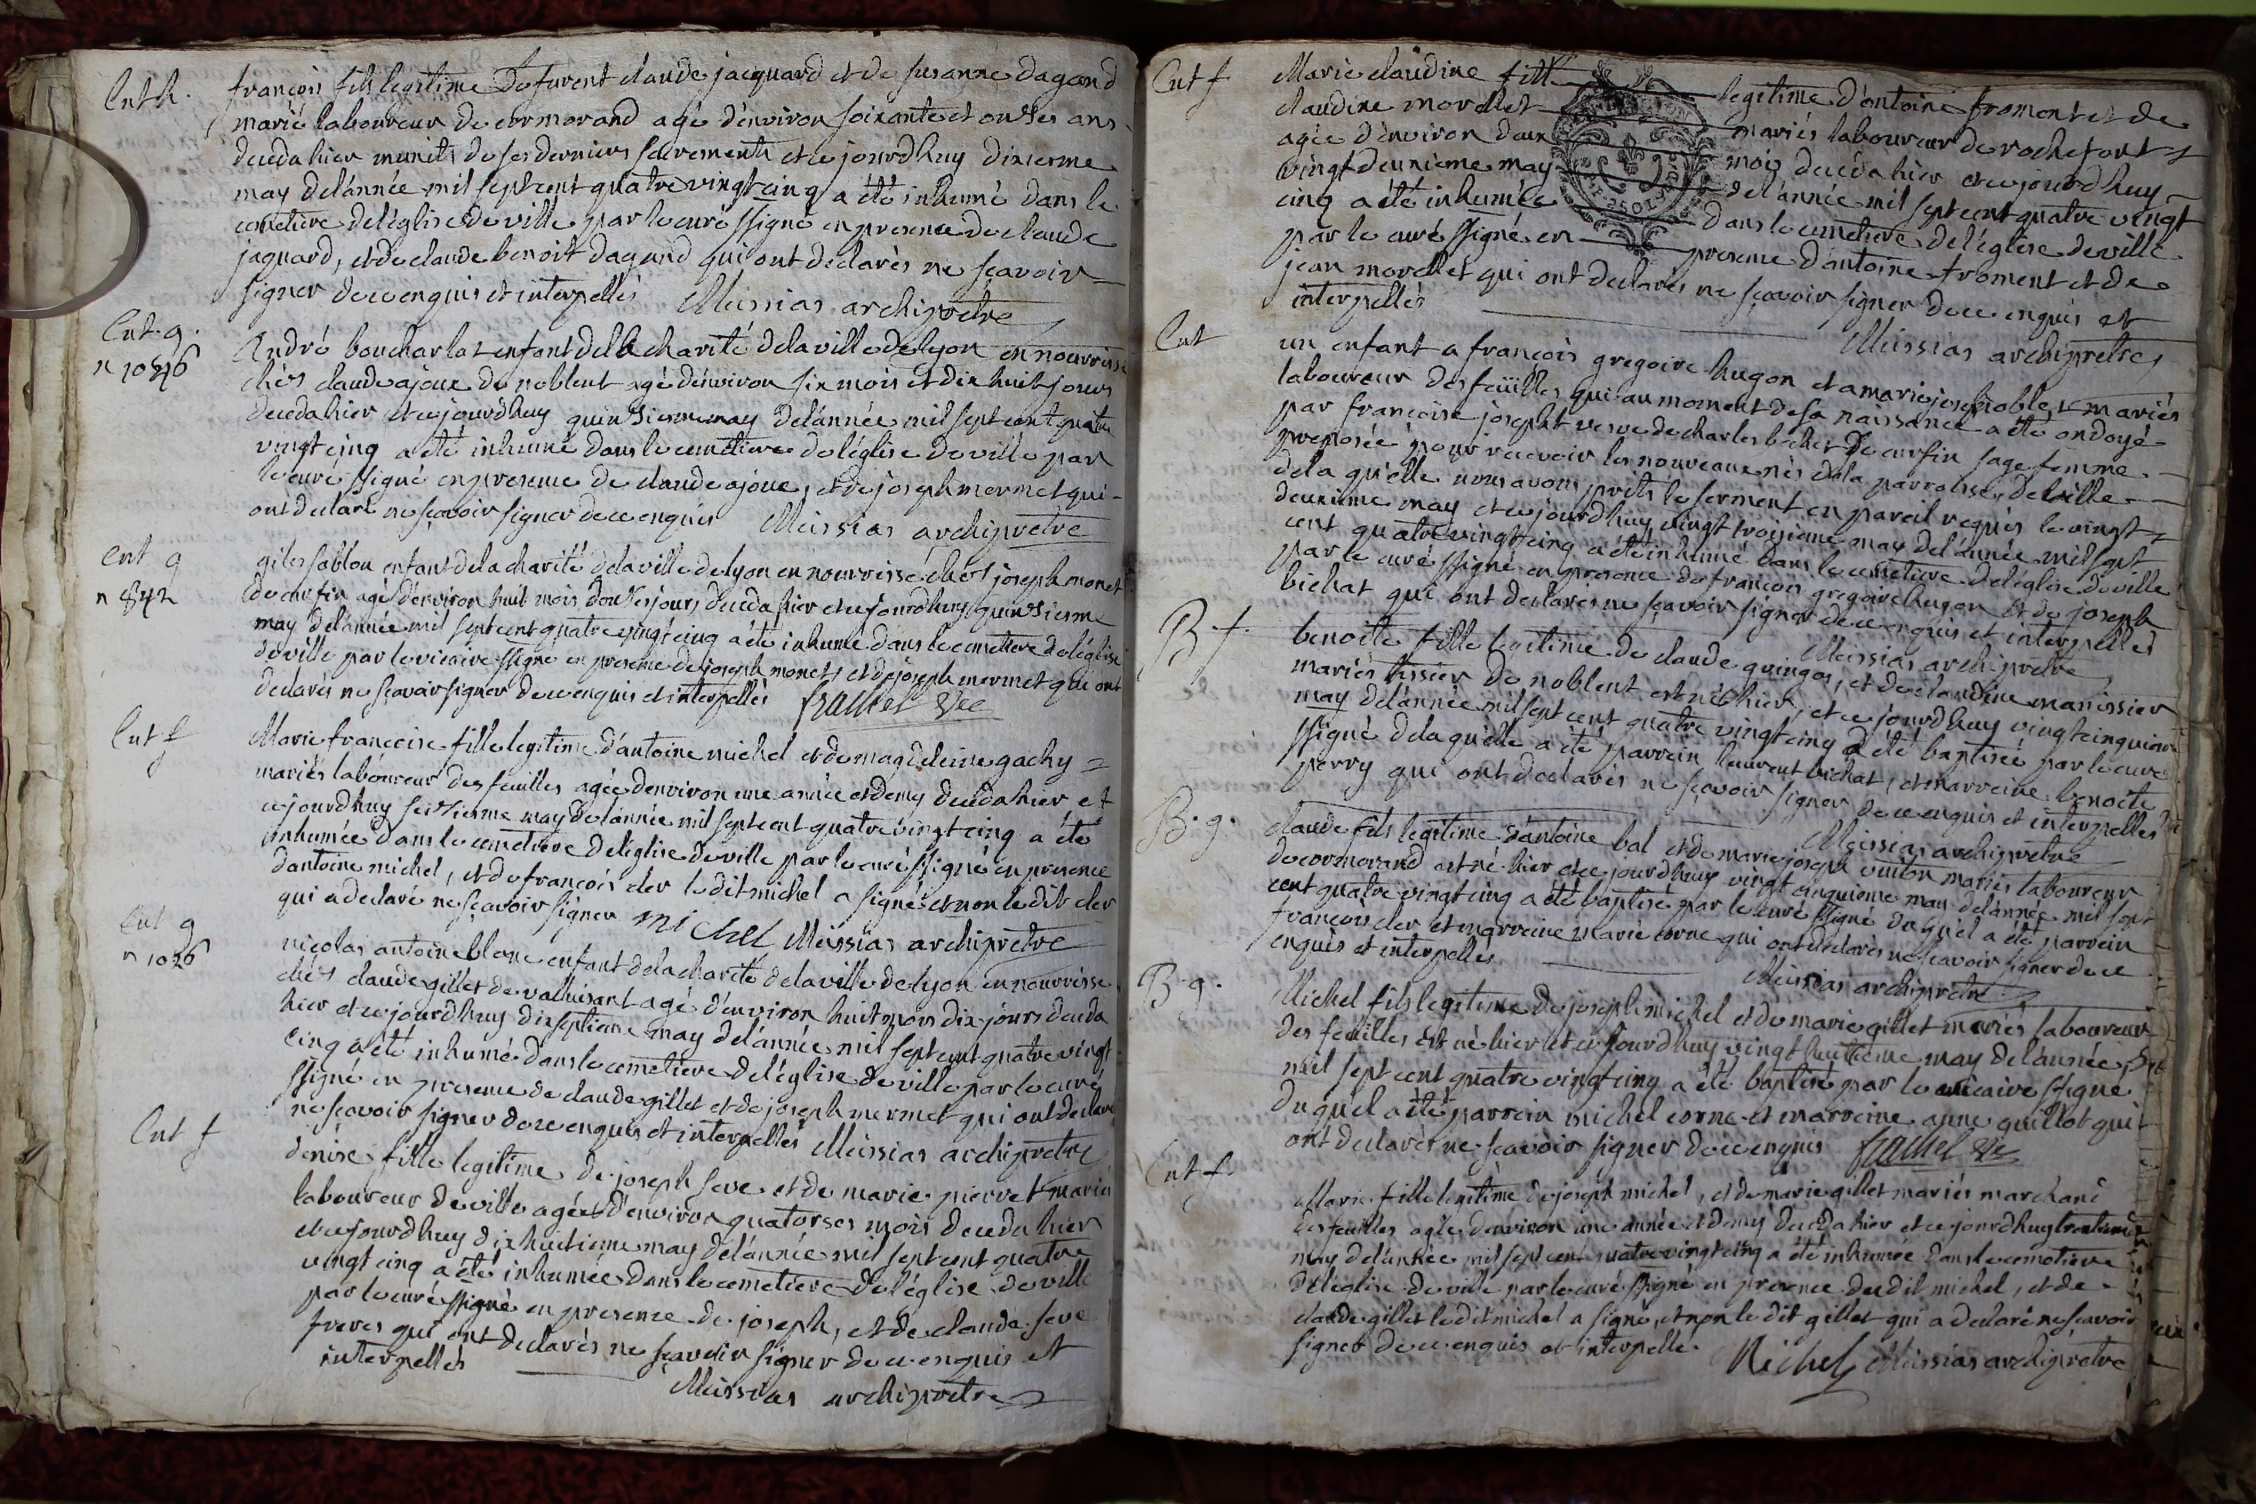 Ent h.
françois fils legitime de furent claude jacquard et de susanne dagand
marié laboureur de cormorand agé d'environ soixante et onzes ans
decedahier munits de ses derniers sacrements et ce jourdhuy dixierme
may delánnée mil sept cent quatre vingt cinq a été inhumé dans le
cemetiere deléglise de ville par le curé ssigné en presence de claude
jaquard, et de claude benoit dagand qui ont declarés ne sçavoir
signer de ce enquis et interpellés Meissias archiprêtre
Ent. g.
n 1056
André boucharlat enfant de la charité de la ville de lyon en nourrisse
chés claude ajoux de noblent agé d'environ six mois et dix huit jours
decedahier et ce jourdhuy quinsieme may delánnée mil sept cent quatre
vingt cinq a été inhumé dans le cemetiere de léglise de ville par
le curé ssigné en presence de claude ajoux, et de joseph mermet qui
ont declaré ne sçavoir signer de ce enquis Meissias archiprêtre
Ent g
n 842
giles sablon enfant de la charité de la ville de lyon en nourrisse chés joseph monet
de curfin agé d'environ huit mois douzes jours decedahier et ce jourdhuy quinsieme
may delánnée mil sept cent quatre vingt cinq a été inhumé dans le cemetiere de léglise
de ville par le vicaire ssigné en presence de joseph monet, et de joseph mermet qui ont
declarés ne sçavoir signer de ce enquis et interpellés frachet Vic
Ent f
Marie françoise fille legitime d'antoine michel et de magdeleine gachy
mariés laboureur des feuilles agée denviron une année et demy decedahier et
ce jourdhuy seizierme may delánnée mil sept cent quatre vingt cinq a été
inhumée dans le cemetiere deléglise de ville par le curé ssigné en presence
d'antoine michel, et de françois cler le dit michel a signé et non le dit cler
qui a declaré ne sçavoir signer michel Meissias archiprêtre
Ent g
n 1026
nicolas antoine blanc enfant de la charité de la ville de lyon en nourrisse
chés claude gillet de valluisant agé d'environ huit mois dix jours deceda
hier et ce jourdhuy dixseptieme may delánnée mil sept cent quatre vingt
cinq a été inhumé dans le cemetiere deléglise de ville par le curé
ssigné en presence de claude gillet et de joseph mermet qui ont declaré
ne sçavoir signer de ce enquis et interpellés Meissias archiprêtre
Ent f
denise fille legitime de joseph seve et de marie pierret mariés
laboureur de ville agée d'environ quatorses mois decedahier
et ce jourdhuy dix huitieme may delánnée mil sept cent quatre
vingt cinq a été inhumée dans le cemetiere de léglise de ville
par le curé ssigné en presence de joseph, et de claude seve
freres qui ont declarés ne sçavoir signer de ce enquis et
interpellés
Meissias archiprêtre
Ent f
Marie claudine fille legitime d'antoine froment et de
claudine morellet mariés laboureur de rochefort
agée d'environ deux mois decedahier et ce jourdhuy
vingt deuxieme may delánnée mil sept cent quatre vingt
cinq a été inhumée dans le cemetiere deléglise de ville
par le curé ssigné en presence d'antoine froment et de
jean morellet qui ont declarés ne sçavoir signer de ce enquis et
interpellés
Meissias archiprêtre
Ent
un enfant a françois gregoire hugon et a marie joseph mariés
laboureur des feuilles qui au moment de sa naissance a été ondoyé
par françoise joseph veuve de charles de curfin sage femme
preposée pour recevoir les nouveaux nés de la parroisse de ville
de la qu'elle nous avons pris le serment en pareil requis le vingt
deuxieme may et ce jourdhuy vingt troisieme may delánnée mil sept
cent quatre vingt cinq a été inhumé dans le cemetiere deléglise de ville
par le curé ssigné en presence de françois gregoire hugon et de joseph
bichat qui ont declarés ne sçavoir signer de ce enquis et interpellés
Meissias archiprêtre
B. f.
benoite fille legitime de claude guingos, et de claudine manissier
mariés tissier de noblent est née hier, et ce jourdhuy vingtcinquieme
may delánnée mil sept cent quatre vingt cinq a été baptisée par le curé
ssigné de la quelle a été parrain laurent bichat, et marreine benoite
perry qui ont declarés ne sçavoir signer de ce enquis et interpellés
Meissias archiprêtre
B. g.
claude fils legitime d'antoine bal et de marie joseph mariés laboureur
de cormorand est né hier et ce jourdhuy vingt cinquieme may delánnée mil sept
cent quatre vingt cinq a été baptisé par le curé ssigné du quel a été parrain
françois cler et marreine marie corne qui ont declarés ne sçavoir signer de ce
enquis et interpellés
Meissias archiprêtre
B. g.
Michel fils legitime de joseph michel et de marie gillet mariés laboureur
des feuilles est né hier et ce jourdhuy vingt huitieme may delánnée
mil sept cent quatre vingt cinq a été baptisé par le vicaire ssigné
du quel a été parrein michel corne et marreine anne guillot qui
ont declarés ne sçavoir signer de ce enquis frachet Vic
Ent f.
Marie fille legitime de joseph michel, et de marie gillet mariés marchand
des feuilles agée denviron une année et demy decedahier et ce jourdhuy trentieme
may delánnée mil sept cent quatre vingt cinq a été inhumée dans le cemetiere
deléglise de ville par le curé ssigné en presence du dit michel, et de
claude gillet le dit michel a signé, et non le dit gillet qui a declaré ne sçavoir
signer de ce enquis et interpellé. Michel Meissias archiprêtre